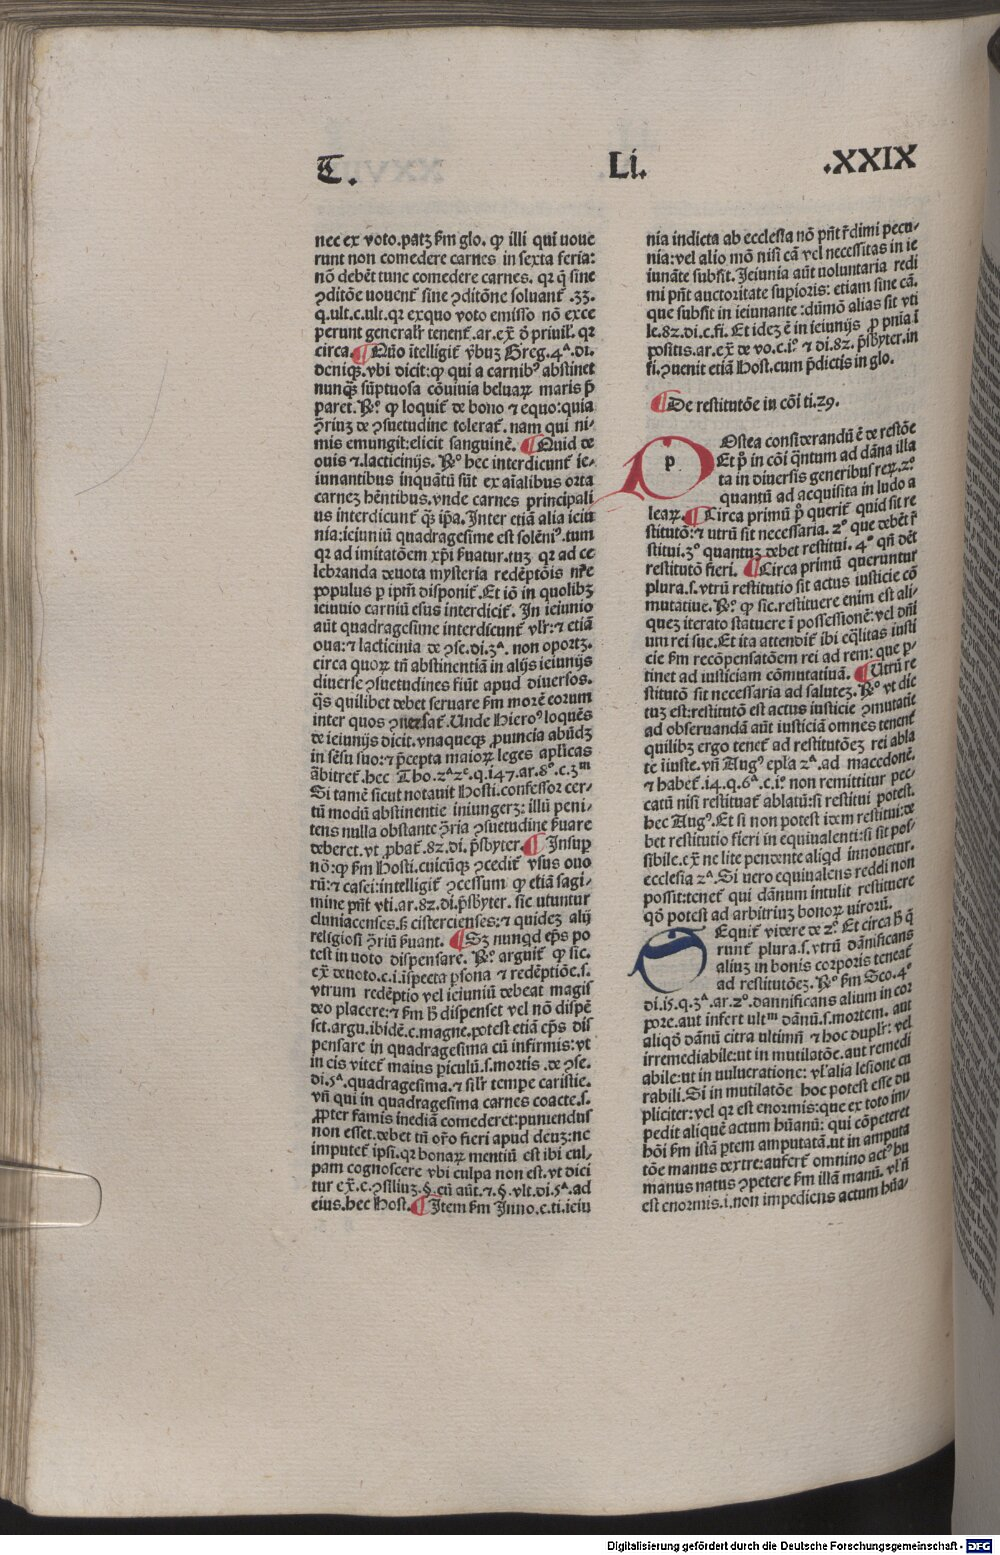 T. Li. .XXIX
nec ex voto.patz ẜm glo. ꝙ illi qui voue
runt non comedere carnes in sexta feria:
nō debēt tunc comedere carnes. qꝛ q̄ sine
ꝯditōe vouent̄ sine ꝯditōne soluant̄ .33.
q.vlt.c.vlt.qꝛ exquo voto emisso nō exce
perunt generalr̄ tenent̄.ar.ex̄ ō priuil. qꝛ
circa. ¶ Quō ītelligit̄ v̄buz Greg.4ᵃ.di.
deniqꝫ.vbi dicit:ꝙ qui a carnibꝰ abstinet
nunqꝫ sūptuosa cōuiuia beluaꝝ maris p̄
paret. Rº. ꝙ loquit̄ de bono ⁊ equo:quia
ꝯ̄riuz de ꝯsuetudine tolerat̄. nam qui ni-
mis emungit:elicit sanguinē. ¶ Quid de
ouis ⁊.lacticinijs. Rº hec interdicunt̄ ie-
iunantibus inquātū sūt ex aīalibus orta
carnez hn̄tibus.vnde carnes principali
us interdicunt̄ qꝫ ip̄a. Inter etiā alia ieiu
nia:ieiuniū quadragesime est solēniꝰ.tum
qꝛ ad imitatōem xp̄i ẜuatur.tuz qꝛ ad ce
lebranda deuota mysteria redēptōis nr̄e
populus ꝑ ip̄m disponit̄. Et iō in quolibꝫ
ieiunio carniū esus interdicit̄. In ieiunio
aūt quadragesime interdicunt̄ vlr̄:⁊ etiā
oua:⁊ lacticinia de ꝯse.di.3ᵃ. non oportz.
circa quoꝝ tn̄ abstinentiā in alijs ieiunijs
diuerse ꝯsuetudines fiūt apud diuersos.
q̄s quilibet debet seruare ẜm morē eorum
inter quos ꝯuersat̄. Unde Hieroꝰ loquēs
de ieiunijs dicit.vnaqueqꝫ ꝓuincia abūdꝫ
in sēsu suo:⁊ p̄cepta maioꝝ leges apl̄icas
ābitret̄.hec Tho.2ᵃ2ᵉ.q.147.ar.8º.c.3ᵐ
Si tamē sicut notauit Hosti.confessor cer-
tū modū abstinentie iniungerꝫ: illū peni-
tens nulla obstante ꝯ̄ria ꝯsuetudine ẜuare
deberet.vt ꝓbat̄.82.di.p̄sbyter. ¶ Insup
nō:ꝙ ẜm Hosti.cuicūqꝫ ꝯcedit̄ vsus ouo
rū:⁊ casei:intelligit̄ ꝯcessum ꝙ etiā sagi-
mine pn̄t vti.ar.82.di.p̄sbyter. sic vtuntur
cluniacenses.ß cistercienses:⁊ quidez alij
religiosi ꝯ̄riū ẜuant. ¶ Sꝫ nunqd ep̄s po
test in voto dispensare. Rº. arguit̄ ꝙ sic.
ex̄ de voto.c.i.īspecta ꝑsona ⁊ redēptiōe.s.
vtrum redēptio vel ieiuniū debeat magis
deo placere:⁊ ẜm ħ dispenset vel nō dispē
set.argu.ibidē.c.magne.potest etiā ep̄s dis
pensare in quadragesima cū infirmis:vt
in eis vitet̄ maius ꝑiculū.s.mortis .de ꝯse.
di.5ᵃ.quadragesima.⁊ silr̄ tempe caristie.
vn̄ qui in quadragesima carnes coacte.s.
ꝓpter famis inediā comederet:puniendus
non esset.debet tn̄ or̄o fieri apud deuz:ne
imputet̄ ipsi.qꝛ bonaꝝ mentiū est ibi cul-
pam cognoscere vbi culpa non est.vt dici
tur ex̄.c.ꝯsiliuz.§.cū aūt.⁊.§.vlt.di.5ᵃ.ad
eius.hec Host. ¶ Item ẜm Inno.c.ti.ieiu
nia indicta ab ecclesia nō pn̄t r̄dimi pecu-
nia:vel alio mō nisi cā vel necessitas in ie
iunāte subsit. Ieiunia aūt voluntaria redi
mi pn̄t auctoritate supioris: etiam sine cā.
que subsit in ieiunante :dūmō alias sit vti
le.82.di.c.fi. Et idez ē in ieiunijs ꝓ pn̄ia ī
positis.ar.ex̄ de vo.c.iº ⁊ di.82. p̄sbyter.in
fi.ꝯuenit etiā Host.cum p̄dictis in glo.
¶ De restitutōe in cōi ti.29.
p Ostea considerandū ē de restōe
Et p̄ in cōi q̄ntum ad dāna illa
ta in diuersis generibus reꝝ.2º
quantū ad acquisita in ludo a
leaꝝ. ¶ Circa primū p̄ querit̄ quid sit re
stitutō:⁊ vtrū sit necessaria. 2º que debēt r̄
stitui.3º quantuz debet restitui. 4º qn̄ dēt
restitutō fieri. ¶ Circa primū queruntur
plura.s.vtrū restitutio sit actus iusticie cō
mutatiue. Rº. ꝙ sic.restituere enim est ali-
quez iterato statuere ī possessionē:vel dn̄i
um rei sue. Et ita attendit̄ ibi eq̄litas iusti
cie ẜm recōpensatōem rei ad rem: que ꝑ-
tinet ad iusticiam cōmutatiuā. ¶ Utrū re
stitutō sit necessaria ad salutez. Rº vt dic
tuz est:restitutō est actus iusticie ꝯmutatie
ad obseruandā aūt iusticiā omnes tenent̄
quilibꝫ ergo tenet̄ ad restitutōez rei abla
te iiuste.vn̄ Augꝰ ep̄la 2ᵃ.ad macedonē.
⁊ habet̄.14.q.6ᵃ.c.iº non remittitur pec-
catū nisi restituat̄ ablatū:si restitui potest.
hec Augꝰ. Et si non potest idem restitui:de
bet restitutio fieri in equiualenti:si sit pos-
sibile.ex̄ ne lite pendente aliqd innouetur.
ecclesia 2ᵃ. Si uero equiualens reddi non
possit:tenet̄ qui dānum intulit restituere
qō potest ad arbitriuz bonoꝝ uirorū.
S Equit̄ videre de 2º. Et circa ħ q̄
runt̄ plura.s.vtrū dānificans
aliuz in bonis corporis teneat̄
ad restitutōez. Rº ẜm Sco.4º
di.15.q.3ᵃ.ar.2º.dannificans alium in cor
pore.aut infert ultᵐ dānū.s.mortem. aut
aliqō dānū citra ultimū ⁊ hoc duplr̄: vel
irremediabile:ut in mutilatōe.aut remedi
abile:ut in uulneratione: vl̓ alia lesione cu
rabili. Si in mutilatōe hoc potest esse du
pliciter:vel qꝛ est enormis:que ex toto im-
pedit aliquē actum hūanū: qui cōpeteret
hōi ẜm istā ꝑtem amputatā.ut in amputa
tōe manus dextre:aufert̄ omnino actꝰ hu
manus natus ꝯpetere ẜm illā manū. vl̓ n̄
est enormis.i.non impediens actum hūa-
Digitalisierung gefördert durch die Deutsche Forschungsgemeinschaft - DFG